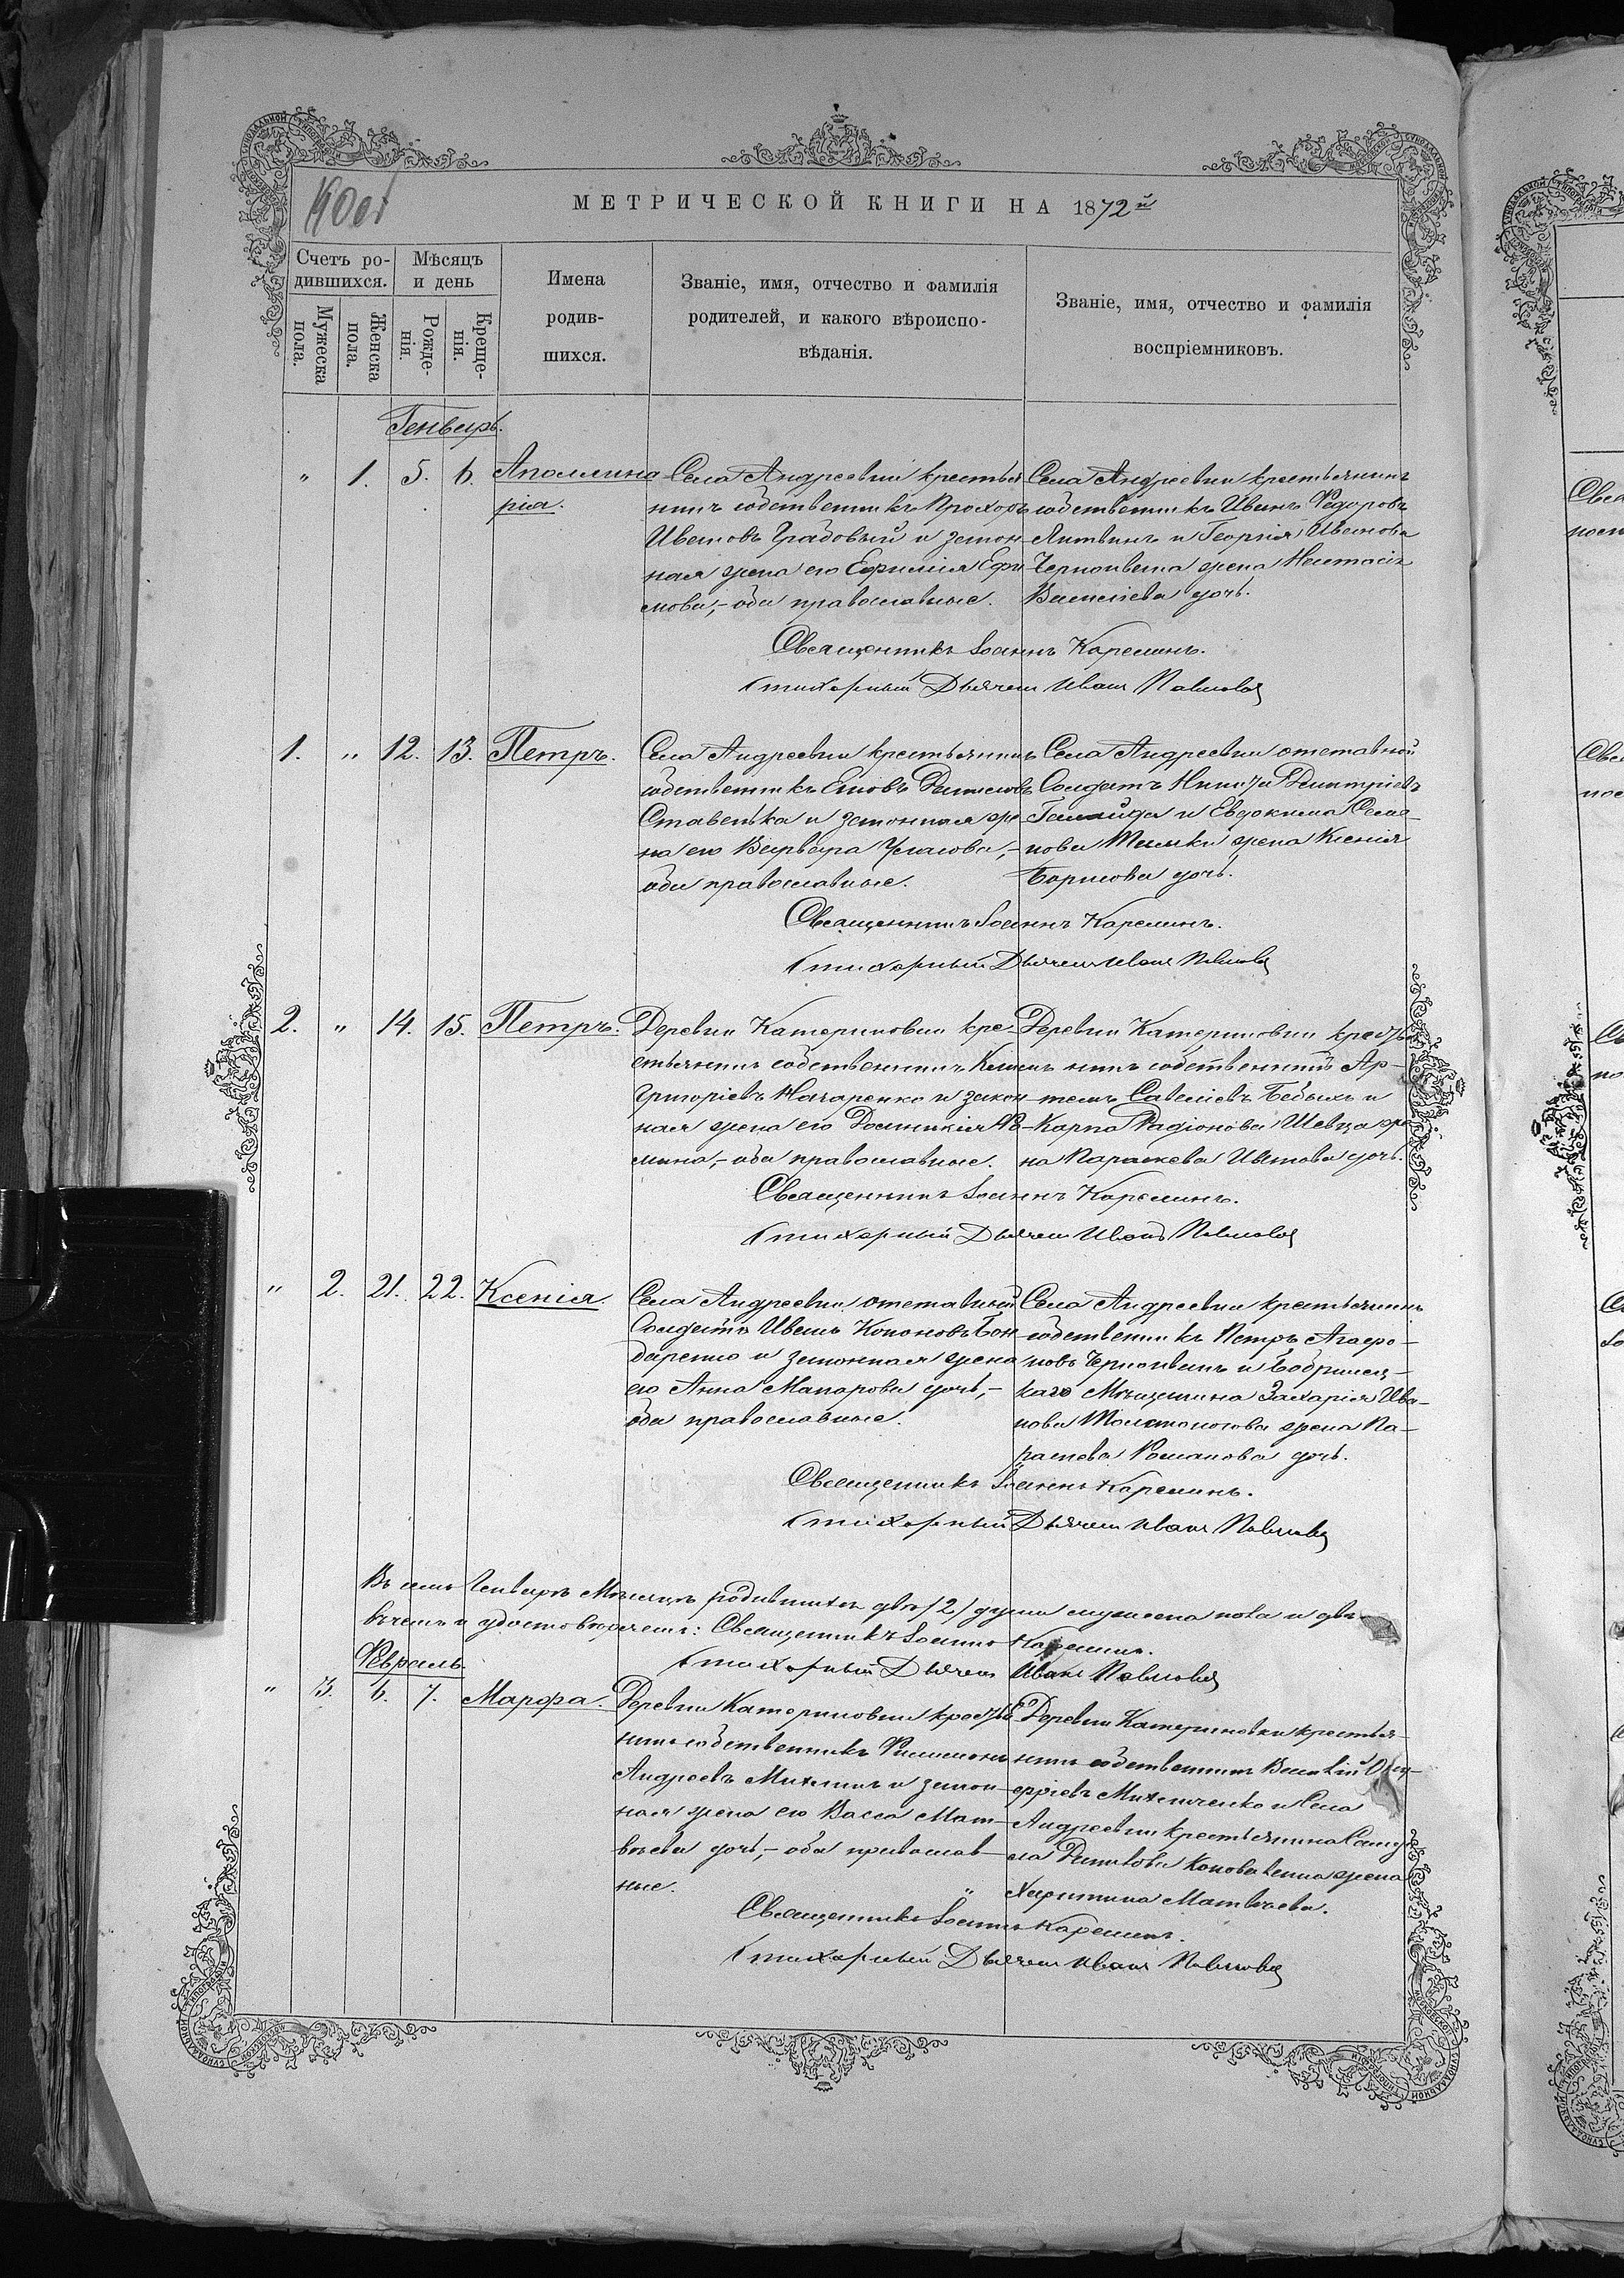 МЕТРИЧЕСКОЙ КНИГИ НА 1872й
Счетъ ро-
дившихся.
Мѣсяцъ
и день
Имена
родив-
шихся.
Званіе, имя, отчество и фамилія
родителей, и какого вѣроиспо-
вѣданія.
Званіе, имя, отчество и фамилія
воспріемниковъ.
Мужеска
пола.
Женска
пола.
Рожде-
нія.
Креще-
нія.
Генваръ.
" 1. 5. 6. Аполлина
рія.
Села Андреевки крестья
нинъ собственникъ Прохоръ
Ивановъ Градовый и закон
ная жена его Ефимія Ефи
мова,- оба православные.
Села Андреевки крестьянинъ
собственникъ Иванъ Федоровъ
Литвинъ и Георгія Иванова
жена Настасія
Василіева дочь.
Священникъ Іоаннъ Карелинъ.
Стихарный Дьячекъ Иванъ Павловъ
1. " 12. 13. Петръ.
Села Андреевки крестьянинъ
собственникъ
и законная же
на его Варвара
оба православные.
Села Андреевки отставной
Солдатъ Никита Димитріевъ
и Евдокима Семе-
нова жена Ксенія
Борисова дочь.
Священникъ Іоаннъ Карелинъ.
Стихарный Дьячекъ Иванъ Павловъ
2. " 14. 15. Петръ.
Деревни Катериновки кре-
стьянинъ собственникъ
Григоріевъ Назаренко и закон
ная жена его Домникія
оба православные.
Деревни Катериновки крестья
нинъ собственникъ Ар-
темъ Савеліевъ и
Карпа Радіонова Шевца же
на Параскева Иванова дочь.
Священникъ Іоаннъ Карелинъ.
Стихарный Дьячекъ Иванъ Павловъ
" 2. 21. 22. Ксенія.
Села Андреевки отставный
Солдатъ Иванъ Кононовъ Бон
даренко и законная жена
его Анна Макарова дочь,-
оба православные.
Села Андреевки крестьянинъ
собственникъ Петръ Агафо-
новъ и Бобринец-
каго Мѣщанина Захарія Ива-
нова Толстоногова жена Па-
раскева Романова дочь.
Священникъ Іоаннъ Карелинъ.
Стихарный Дьячекъ Иванъ Павловъ
Въ семъ Генварѣ Мѣсяцѣ родившихся двѣ /2/ души мужеска пола и двѣ
въ чемъ и удостовѣряемъ: Священникъ Іоаннъ Карелинъ.
Стихарный Дьячекъ Иванъ Павловъ
Февраль.
" 3. 6. 7. Марфа.
Деревни Катериновки крестья
нинъ собственникъ Филимонъ
Андреевъ и закон-
ная жена его Васса Мат-
вѣева дочь,- оба православ-
ные.
Деревни Катериновки крестья-
нинъ собственникъ
и Села
Андреевки крестьянина Саму
ила Коноваленка жена
Харитина Матвѣева.
Священникъ Іоаннъ Карелинъ.
Стихарный Дьячекъ Иванъ Павловъ